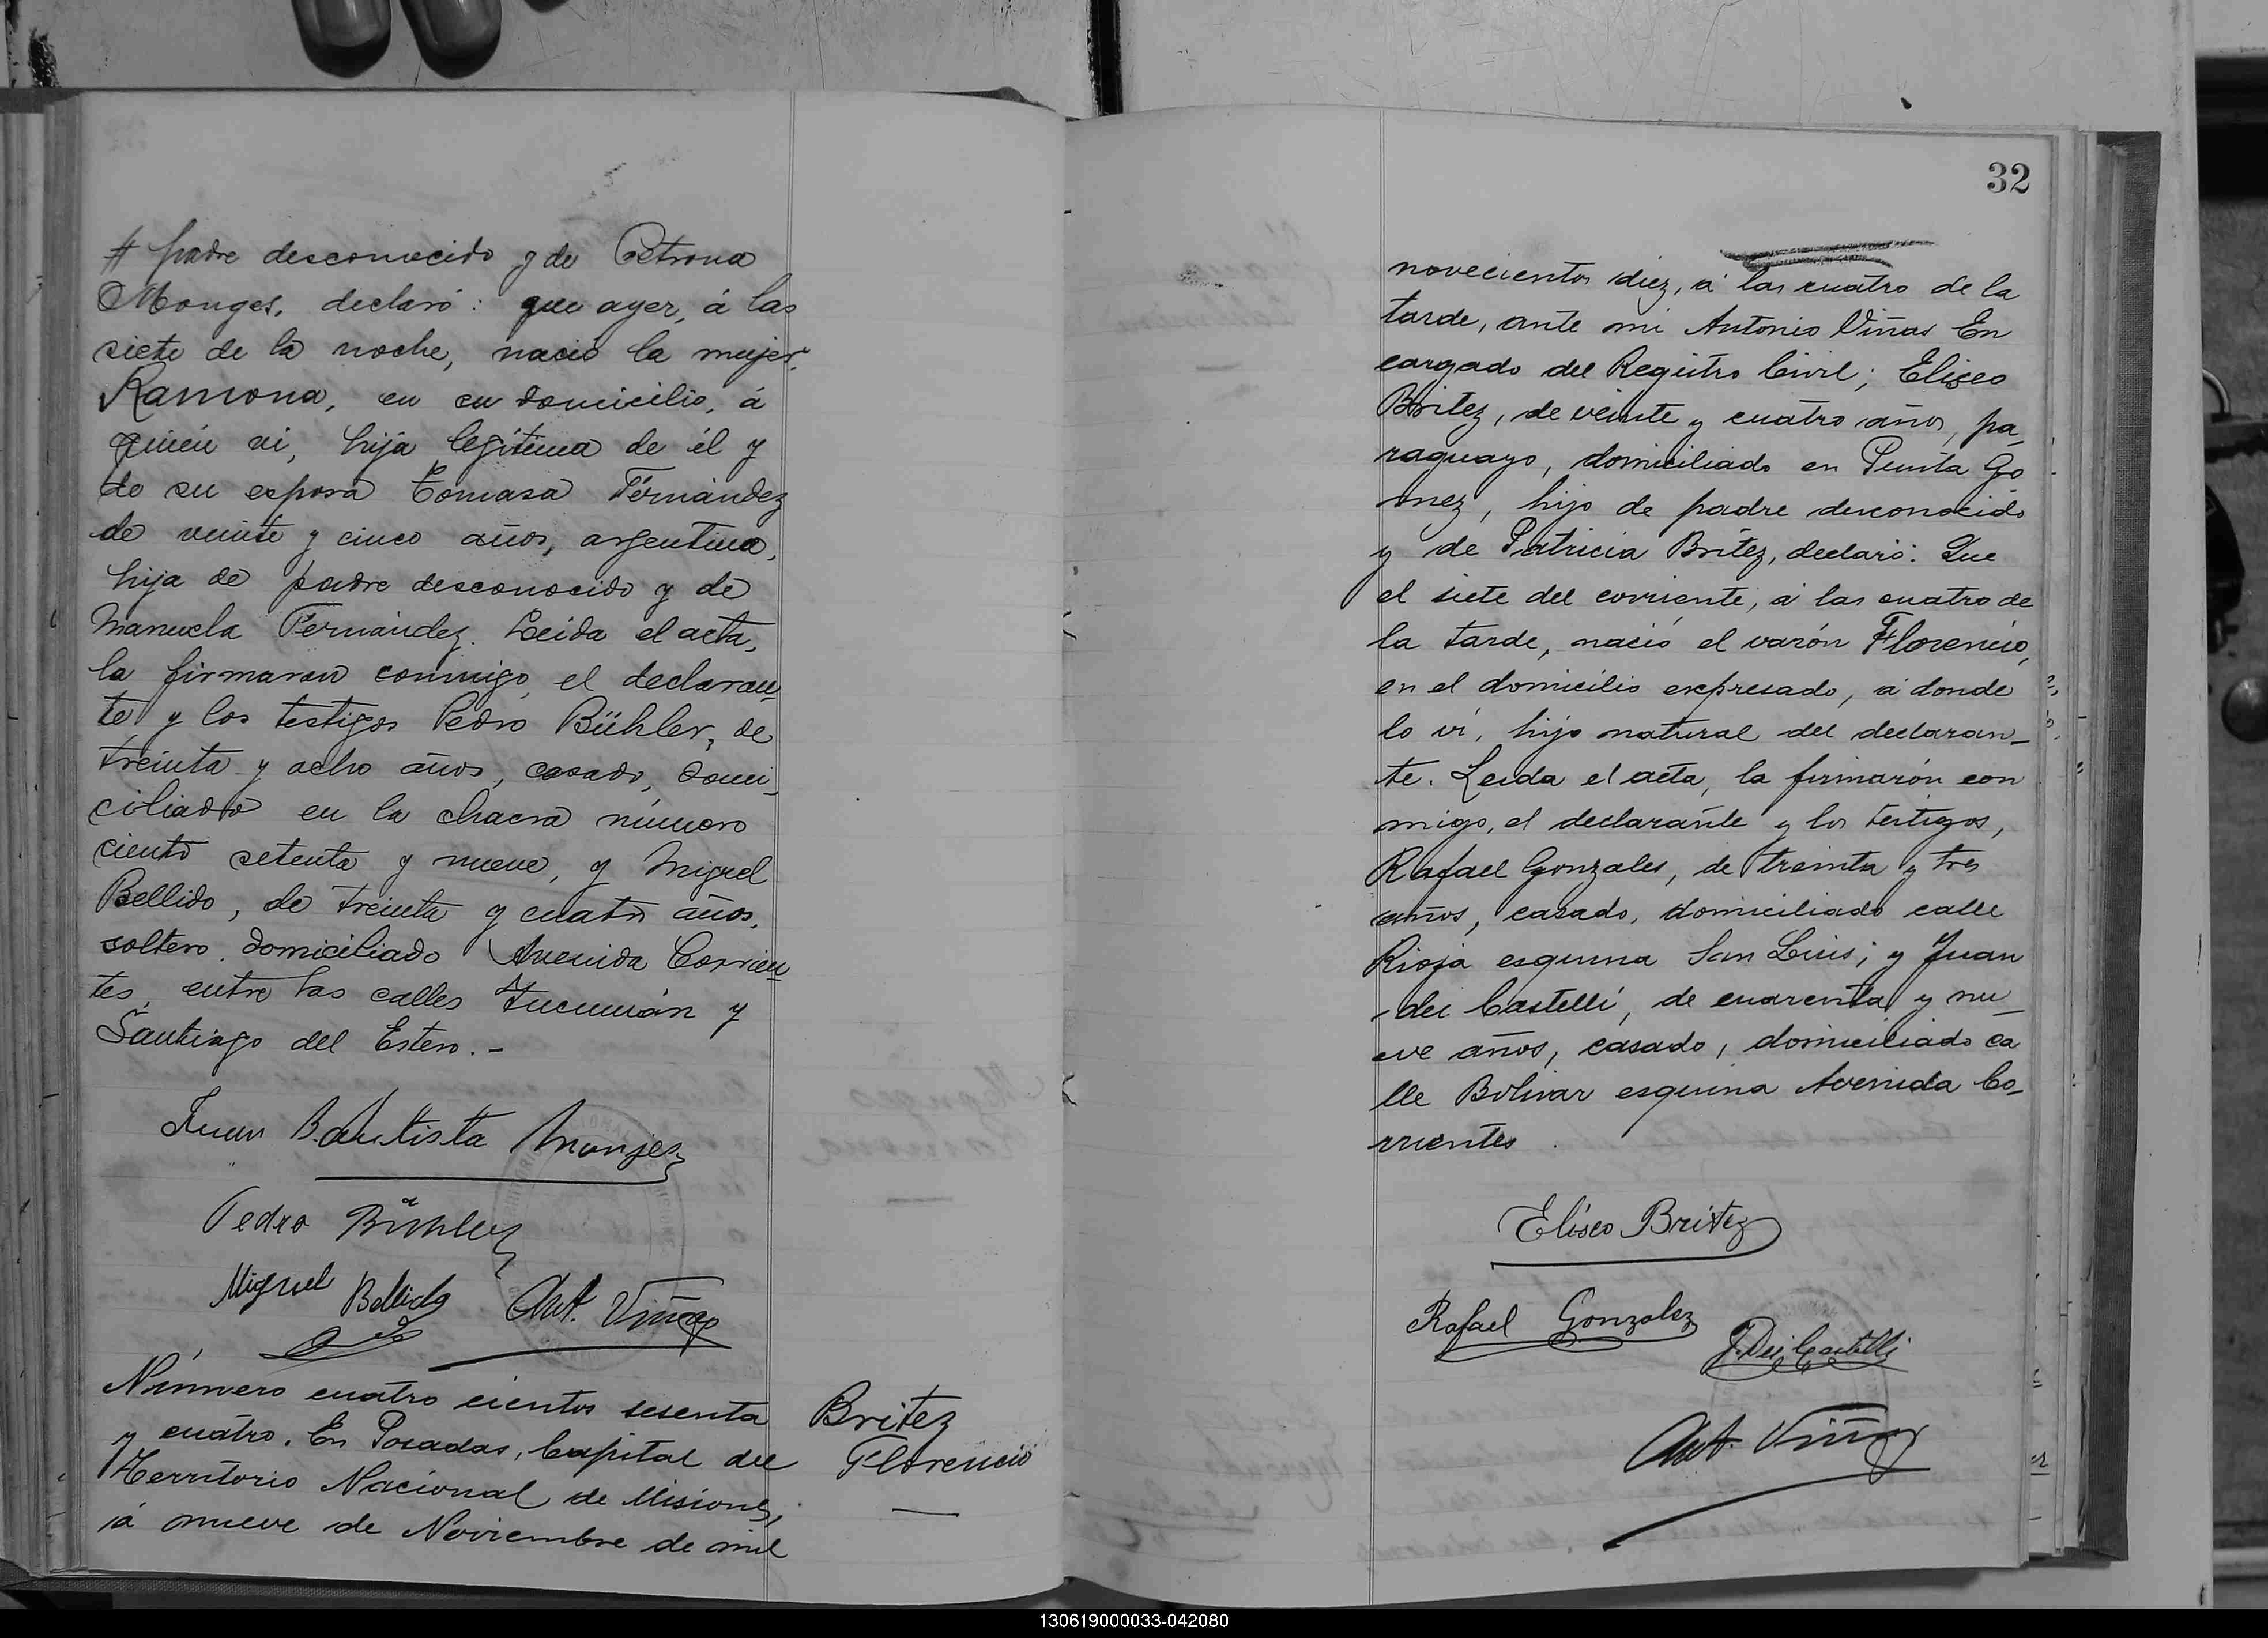 # padre desconocido y de Petrona
Monges, declaró: que ayer, á las
siete de la noche, nació la mujer
Ramona, en su domicilio, á
quien vi, hija legítima de él y
de su esposa Tomasa Fernández
de veinte y cinco años, argentina,
hija de padre desconocido y de
Manuela Fernández. Leida el acta,
la firmaron conmigo, el declaran-
te y los testigos Pedro Bühler, de
treinta y ocho años, casado, domi-
ciliado en la chacra número
ciento setenta y nueve, y Miguel
Bellido, de treinta y cuatro años,
soltero, domiciliado Avenida Corrien-
tes, entre las calles Tucumán y
Santiago del Estero.-
Juan Bautista Monges
Pedro Bühler
Miguel Bellido Ant. Viñas
Número cuatro cientos sesenta
y cuatro. En Posadas, Capital del
Territorio Nacional de Misiones,
á nueve de Noviembre de mil
Britez
Florencio
32
novecientos diez, á las cuatro de la
tarde, ante mi Antonio Viñas En
cargado del Registro Civil; Eliseo
Britez, de veinte y cuatro años, pa-
raguayo, domiciliado en Punta Go
mez, hijo de padre desconocido
y de Patricia Britez, declaró: Que
el siete del corriente, á las cuatro de
la tarde, nació el varón Florencio,
en el domicilio expresado, á donde
lo vi, hijo natural del declaran-
te. Leida el acta, la firmarón con
migo, el declarante y los testigos,
Rafael Gonzales, de treinta y tres
años, casado, domiciliado calle
Rioja esquina San Luis; y Juan
dei Castelli, de cuarenta y nu-
eve años, casado, domiciliado ca
lle Bolivar esquina Avenida Co-
rrientes
Eliseo Britez
Rafael Gonzalez
J. Dei Castelli
Ant. Viñas
130619000033-042080